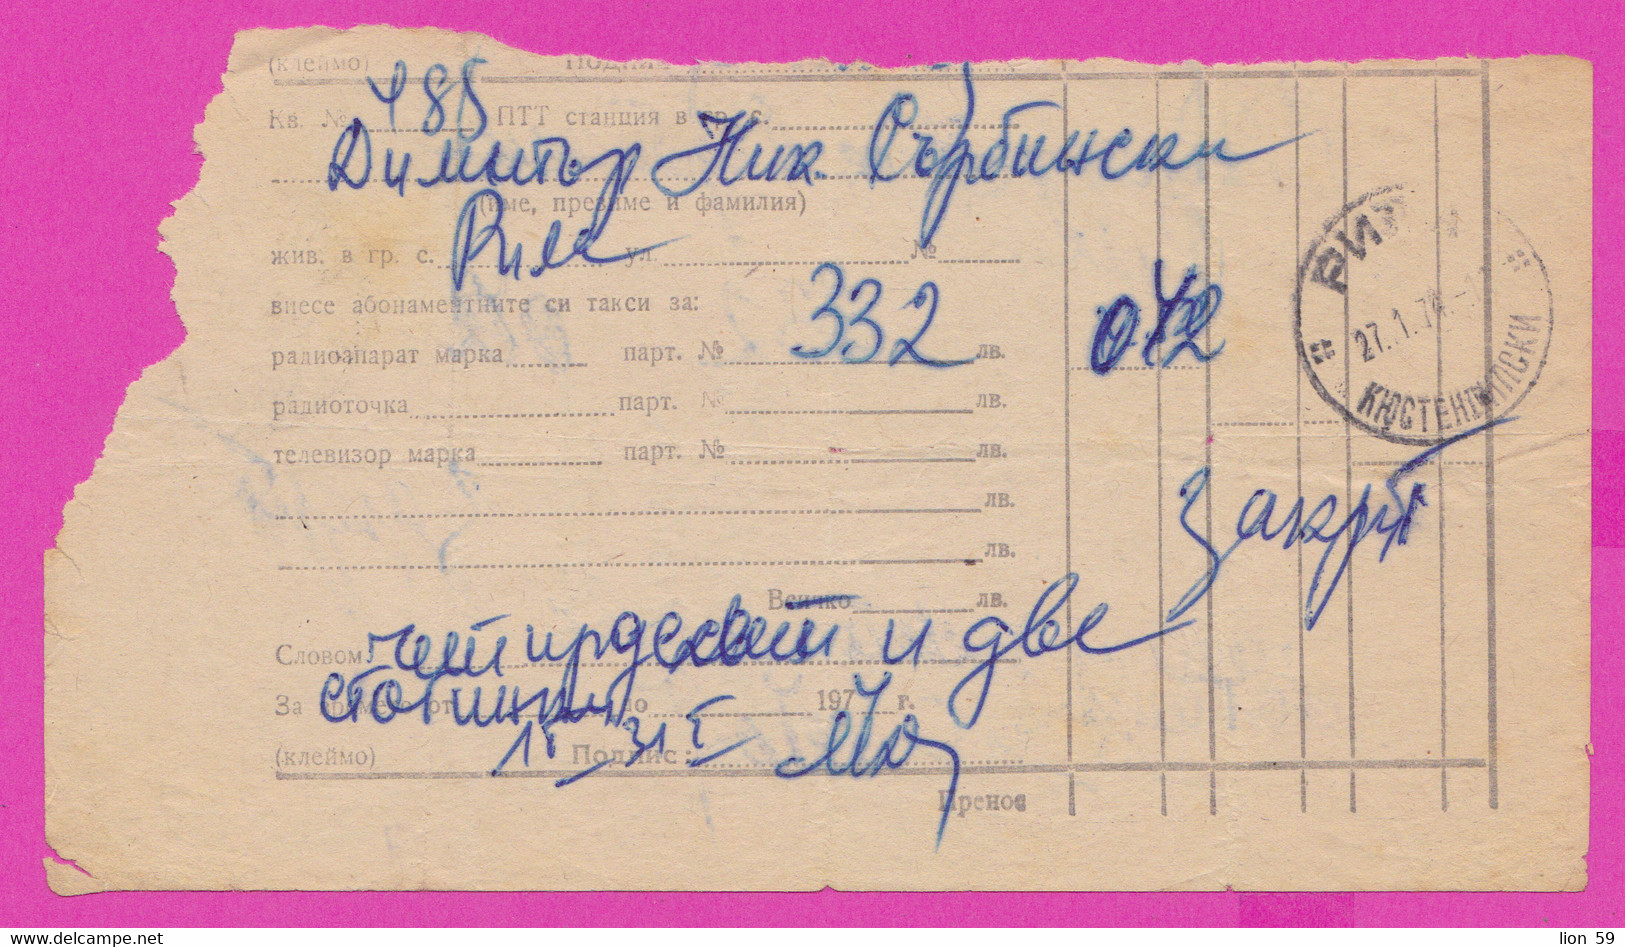 (клеймо) Подпис
Кв. № 485 ПТТ станция в гр. с.
Димитър Ник. Сърбински
(име, презиме и фамилия)
жив. в гр. с. Рила ул. №
внесе абонаментните си такси за:
радиоапарат марка парт. № 332 лв. 042
радиоточка парт. № лв.
телевизор марка парт. № лв.
лв.
лв.
Закрит
Всичко лв.
Словом: четиридесет и две
стотинки
За времето от до 197 г.
15 31 I
(клеймо) Подпис:
Пренос
27.1.74
КЮСТЕНДИЛСКИ
lion 59